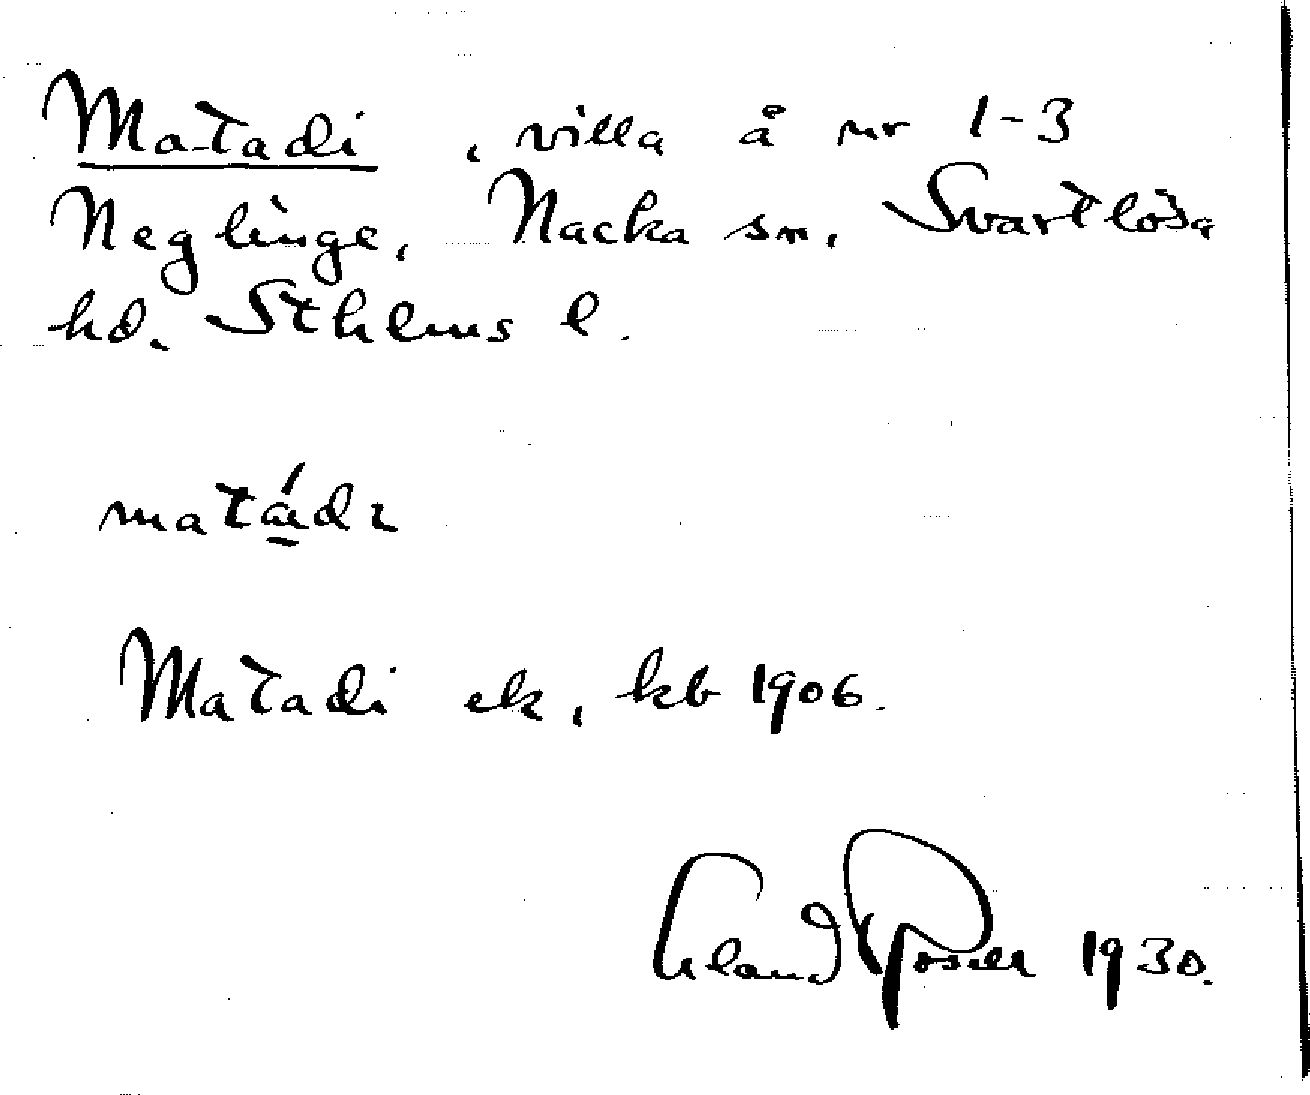 Matadi, villa å nr 1-3
Neglinge, Nacka sn, Svartlösa
hd. Sthlms l.
matádı
Matadi ek, kb 1906.
Erland Rosell 1930.